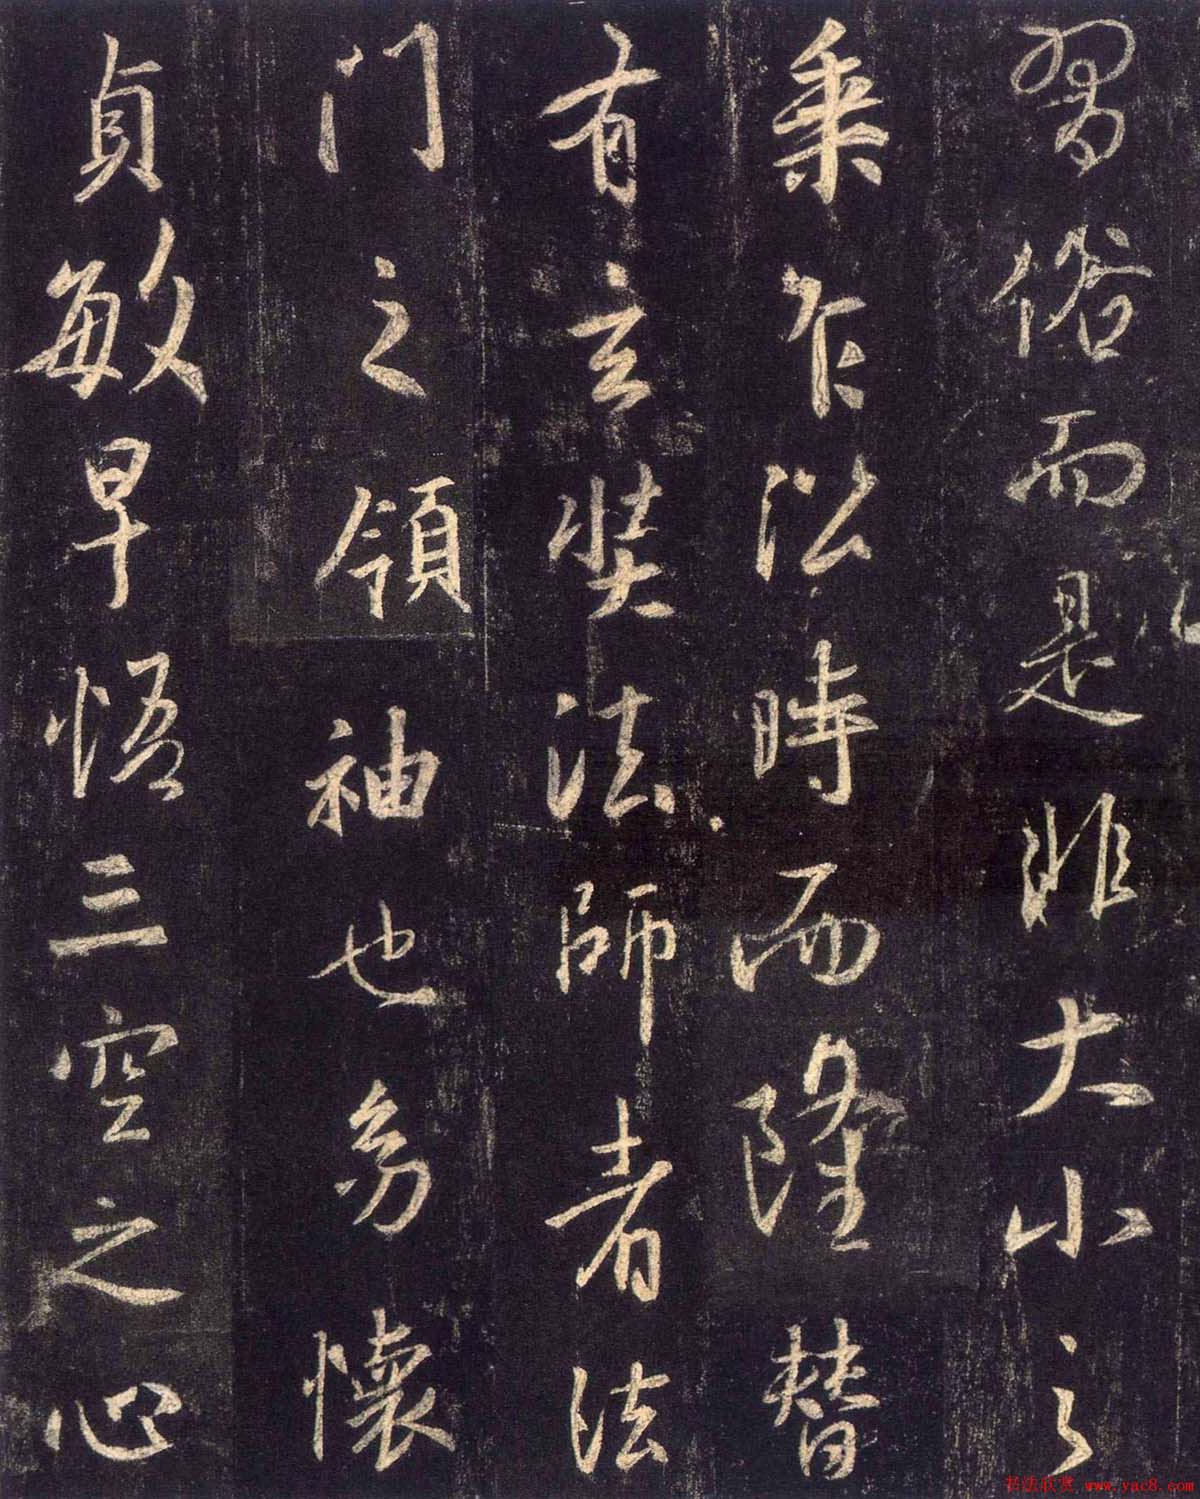 習俗而是非大小之
乘乍㳂時而隆替
有玄奘法師者法
門之領袖也㓜懷
貞敏早悟三空之心
书法欣赏 www.yac8.com